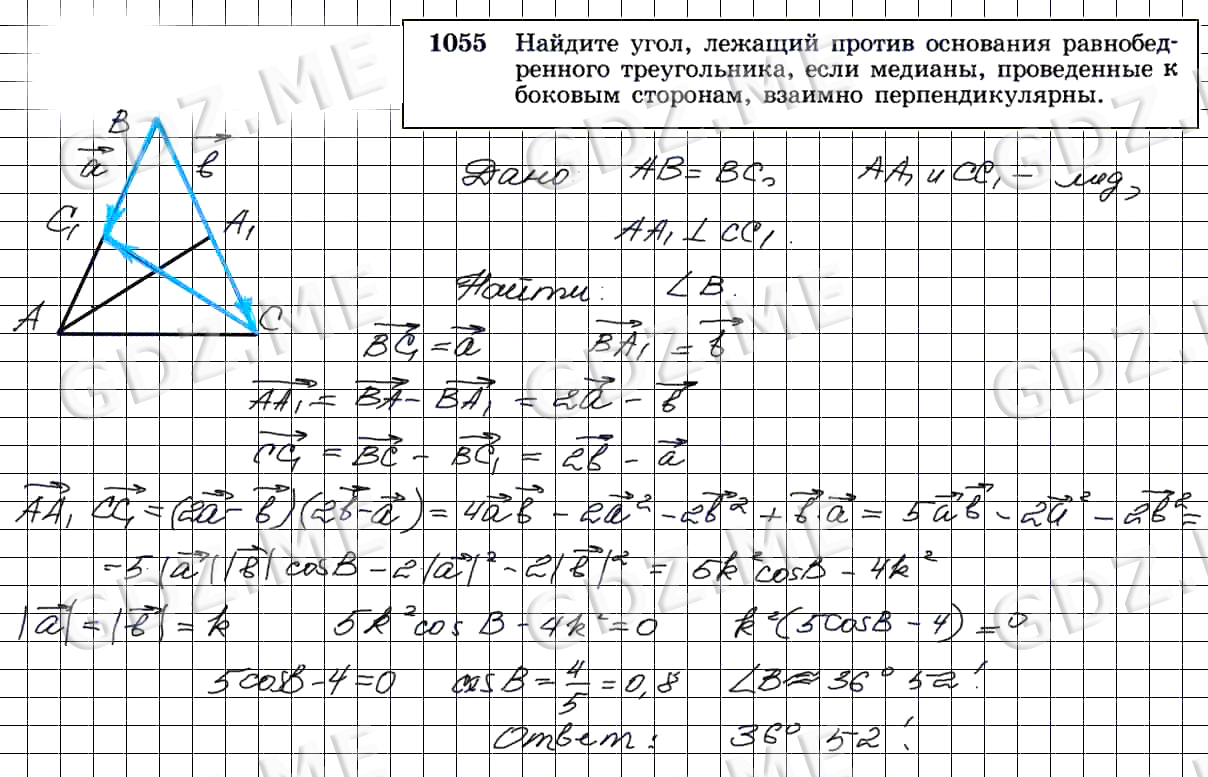 1055 Найдите угол, лежащий против основания равнобед-
ренного треугольника, если медианы, проведенные к
боковым сторонам, взаимно перпендикулярны.
B
a⃗ в⃗
C₁ A₁
A C
Дано AB = BC, AA₁ и CC₁ – мед,
AA₁ ⊥ CC₁.
Найти: ∠B.
BC₁⃗ = a⃗ BA₁⃗ = в⃗
AA₁⃗ = BA⃗ - BA₁⃗ = 2a⃗ - в⃗
CC₁⃗ = BC⃗ - BC₁⃗ = 2в⃗ - a⃗
AA₁⃗ CC₁⃗ = (2a⃗ - в⃗)(2в⃗ - a⃗) = 4a⃗в⃗ - 2a⃗² - 2в⃗² + в⃗·a⃗ = 5a⃗в⃗ - 2a⃗² - 2в⃗² =
= 5·|a⃗||в⃗| cosB - 2|a⃗|² - 2|в⃗|² = 5k²cosB - 4k²
|a⃗| = |в⃗| = k 5k²cos B - 4k² = 0 k²(5cosB - 4) = 0
5cosB - 4 = 0 cosB = 4/5 = 0,8 ∠B ≈ 36° 52'
Ответ: 36° 52'
GDZ.ME